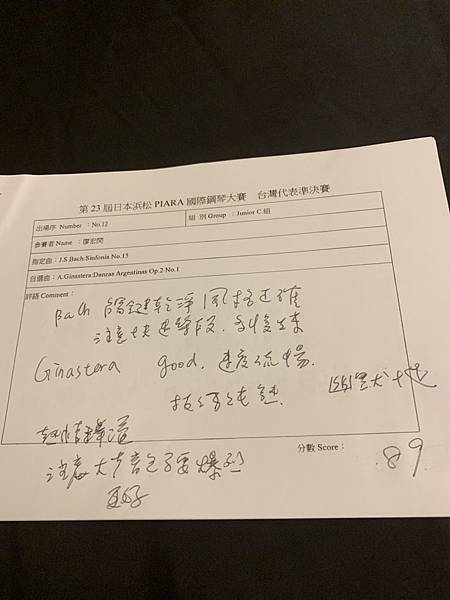 第 23 屆日本浜松 PIARA 國際鋼琴大賽 台灣代表準決賽
出場序 Number ：No.12 組 別 Group ：Junior C 組
參賽者 Name ：廖宏閔
指定曲：J.S Bach:Sinfonia No.15
自選曲：A.Ginastera:Danzas Argentinas Op.2 No.1
評語 Comment：
Bach 觸鍵乾淨 風格正確
注意快速彈段
Ginastera good. 速度流暢.
技巧純熟.
分數 Score：
89
注意大声音不要爆烈
更好